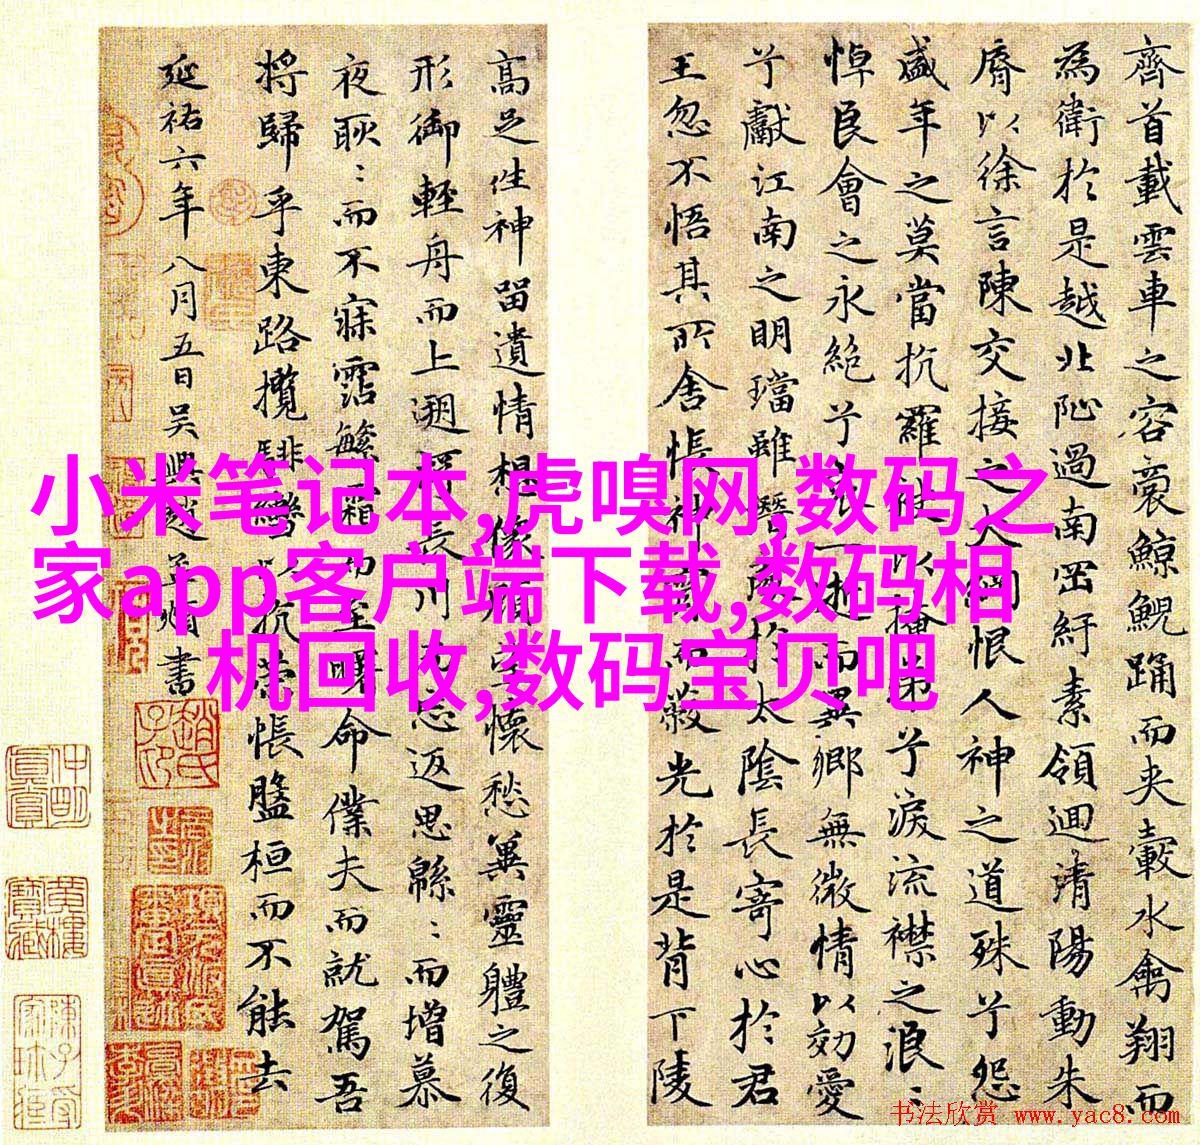 小米笔记本,虎嗅网,数码之
家app客户端下载,数码相
机回收,数码宝贝吧
齊首載雲車之容裔鯨鯢踊而夾轂水禽翔而
為衛於是越北沚過南岡紆素領迴清陽動朱
脣以徐言陳交接之大綱恨人神之道殊兮怨
盛年之莫當抗羅袂以掩涕兮淚流襟之浪〻
悼良會之永絕兮哀一逝而異鄉無微情以効愛
兮獻江南之明璫雖潛處於太陰長寄心於君
王忽不悟其所舍悵神宵而蔽光於是背下陵
高足往神留遺情想像顧望懷愁冀靈體之復
形御輕舟而上遡浮長川而忘返思緜〻而增慕
夜耿〻而不寐霑繁霜而至曙命僕夫而就駕吾
將歸乎東路攬騑轡以抗策悵盤桓而不能去
延祐六年八月五日吳興趙孟頫書
书法欣赏 www.yac8.com